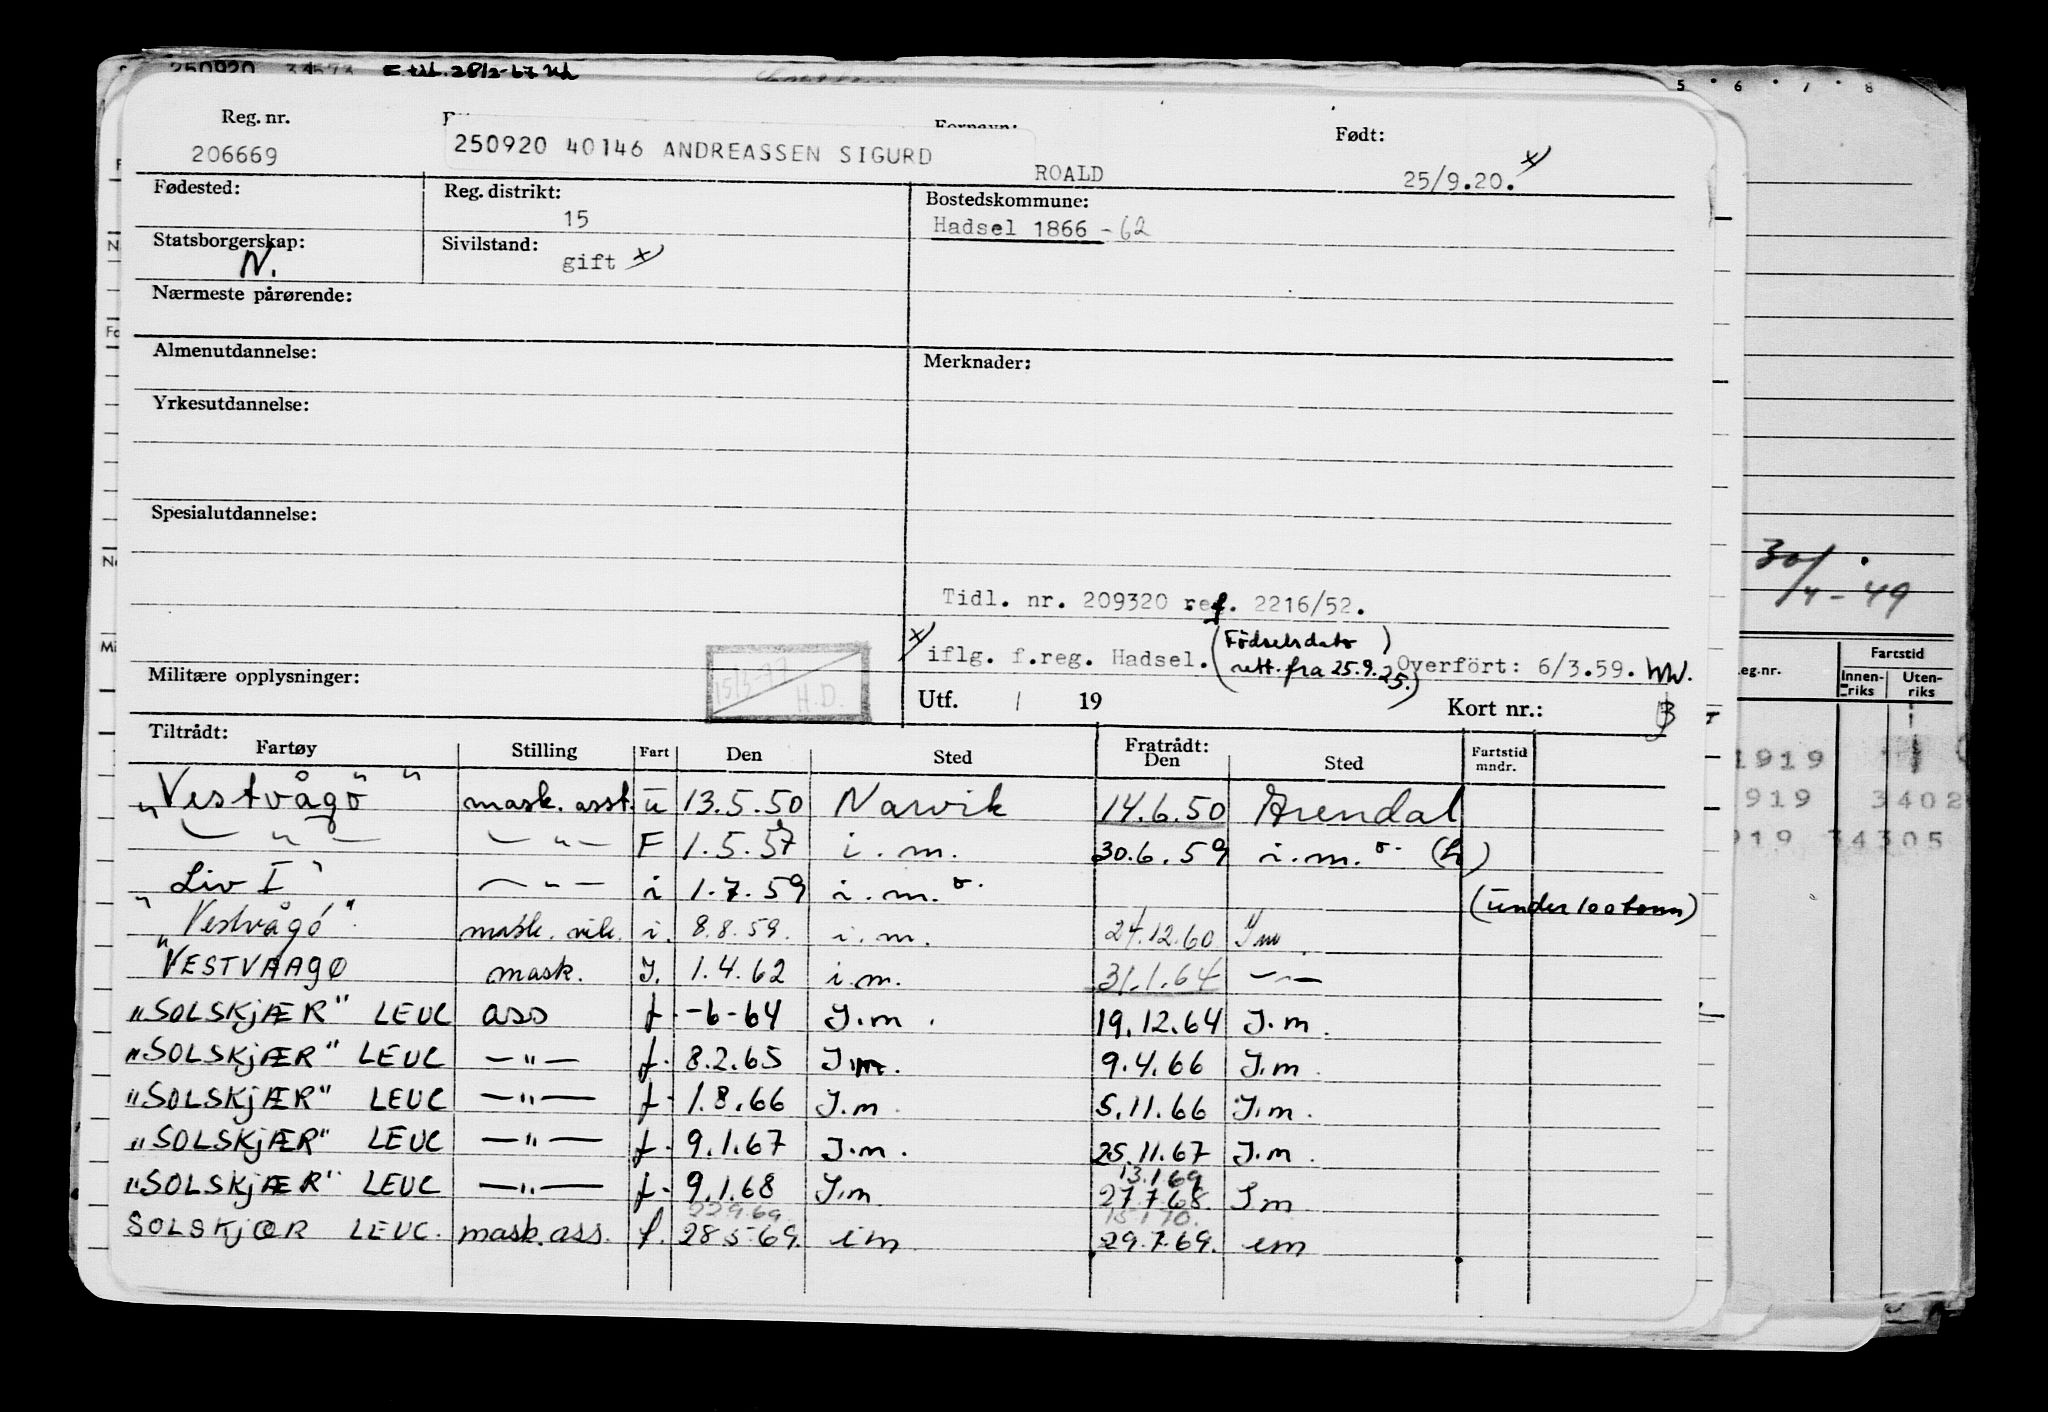 250920
5 · 6 · 7 · 8
Reg. nr. Fornavn: Født:
206669 250920 40146 ANDREASSEN SIGURD ROALD 25/9.20. x)
Fødested: Reg. distrikt: 15 Bostedskommune:
Hadsel 1866 -62
Statsborgerskap: N. Sivilstand: gift x)
Nærmeste pårørende:
Almenutdannelse: Merknader:
Yrkesutdannelse:
Spesialutdannelse:
30/4-49
Tidl. nr. 209320 ref. 2216/52.
x) iflg. f.reg. Hadsel. (Födselsdato rett. fra 25.9.25.) Overført: 6/3.59. WW.
Militære opplysninger: 15/3-77 H.D. Utf. / 19 Kort nr.: 3
Tiltrådt: Fratrådt:
Fartøy Stilling Fart Den Sted Den Sted Fartstid mndr.
"Vestvågö" mask. asst. u 13.5.50 Narvik 14.6.50 Arendal
— " — — " — F 1.5.57 i.m. 30.6.59 i.m. (h)
Liv I — " — i 1.7.59 i.m. (under 100 tonn)
"Vestvågö" mask. vik. i. 8.8.59. i.m. 24.12.60 Im
"VESTVAAGØ mask. I. 1.4.62 i.m. 31.1.64 — " —
"SOLSKJÆR" LEUC ass f. -6-64 I.m. 19.12.64 I.m.
"SOLSKJÆR" LEUC — " — f. 8.2.65 I.m. 9.4.66 I.m.
"SOLSKJÆR" LEUC — " — f. 1.8.66 I.m. 5.11.66 I.m.
"SOLSKJÆR" LEUC — " — f. 9.1.67 I.m. 25.11.67 I.m.
13.1.69
"SOLSKJÆR" LEUC — " — f. 9.1.68 I.m 27.7.68. I m
22.9.69. 15.1.70.
SOLSKJÆR LEUC. mask. ass. f. 28.5-69. im 29.7.69. im
Fartstid
eg.nr. Innen-riks Uten-riks
1919
919 3402
919 34305